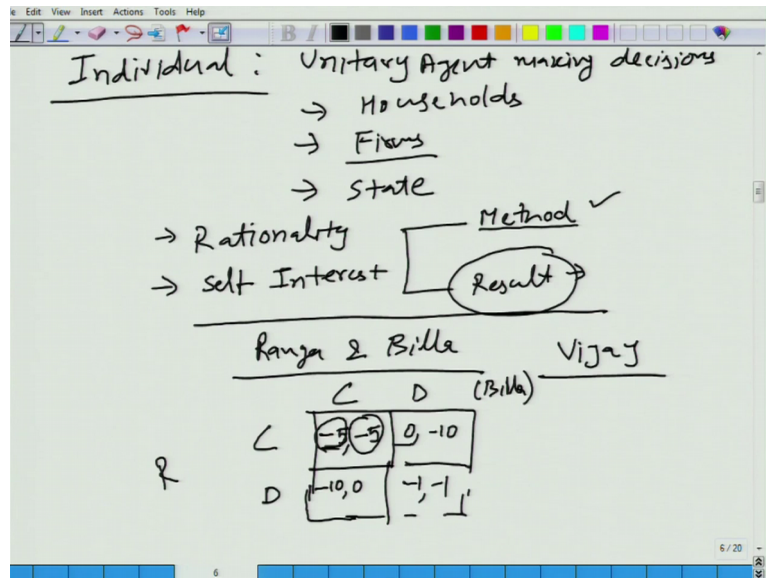 e Edit View Insert Actions Tools Help
Individual : Unitary Agent making decisions
→ Households
→ Firms
→ State
→ Rationality Method ✓
→ Self Interest Result →
Ranga & Billa Vijay
C D (Billa)
C -5, -5 0, -10
R
D -10, 0 -1, -1
6/20
6